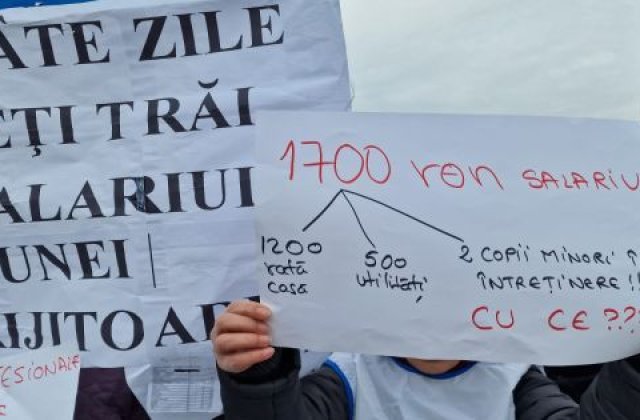 ÂTE ZILE
EȚI TRĂI
SALARIUL
UNEI
RIJITOARE
1700 ron SALARIU
1200
rată
casa
500
utilități
2 COPII MINORI Î
ÎNTREȚINERE !!
CU CE ???
ESIONALE